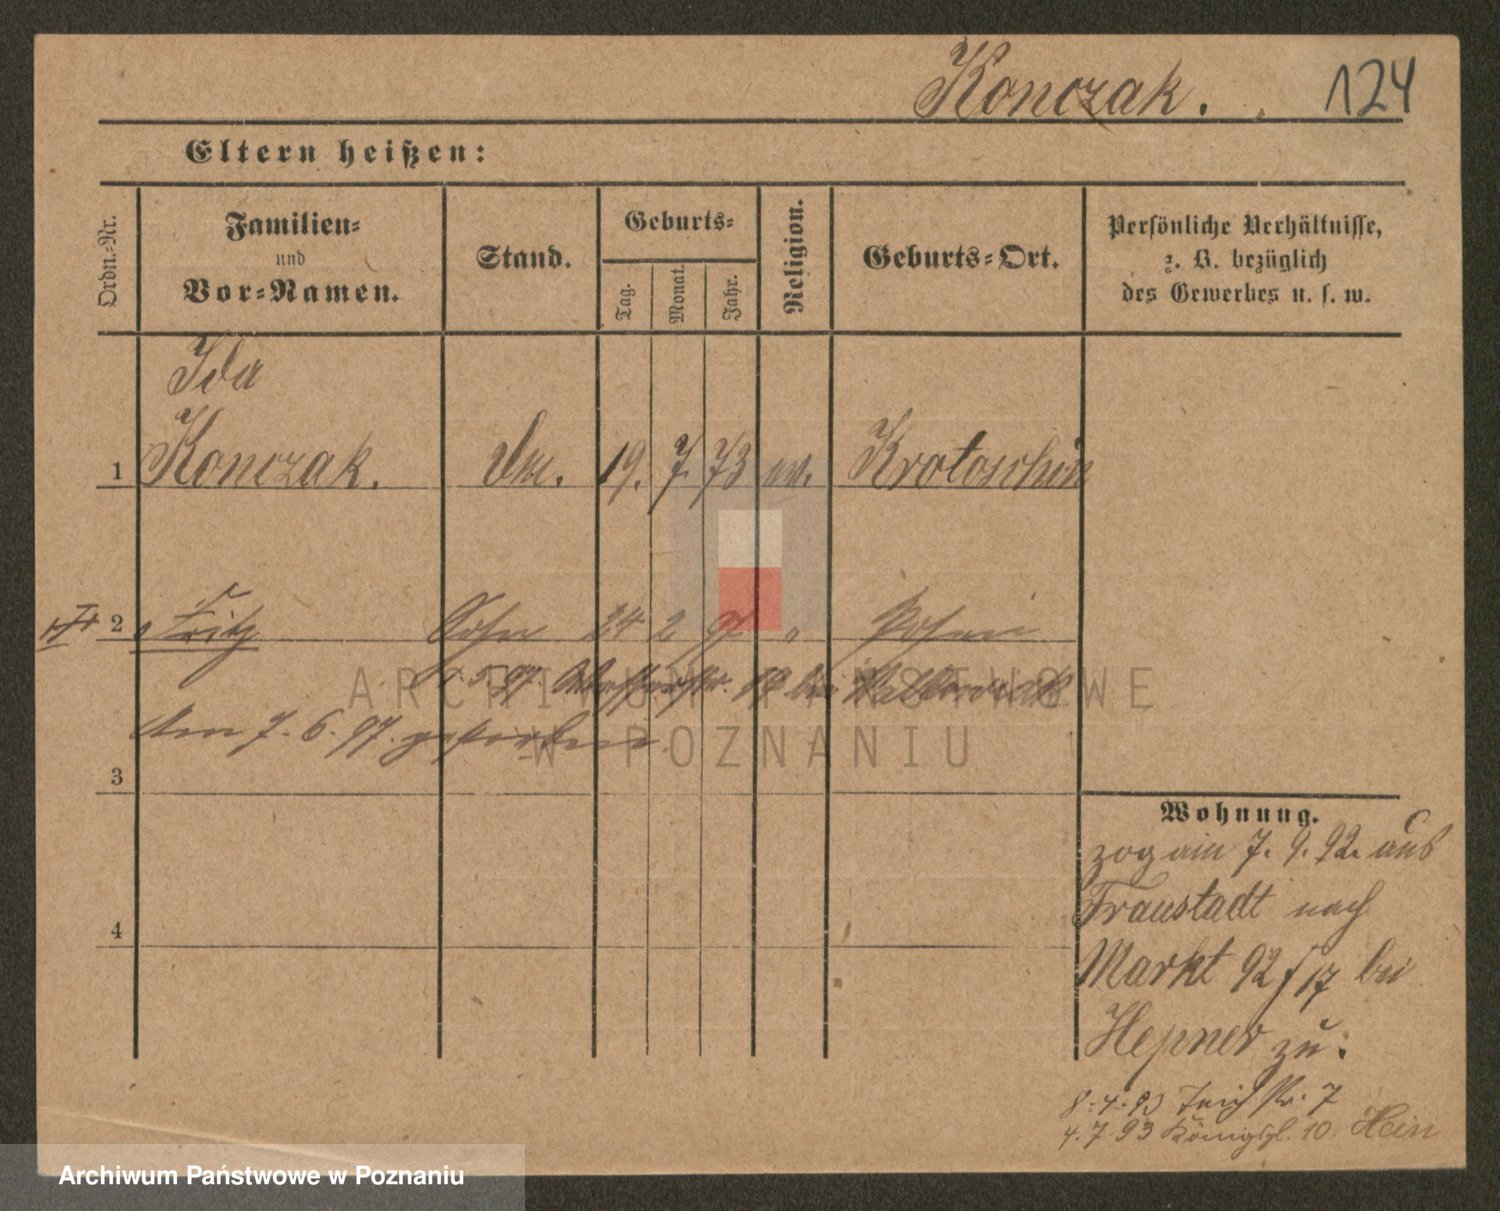 Konczak. 124
Eltern heißen:
Ordn.-Nr.
Familien-
und
Vor-Namen.
Stand.
Geburts-
Tag. Monat. Jahr.
Religion.
Geburts-Ort.
Persönliche Verhältnisse,
z. B. bezüglich
des Gewerbes u. s. w.
Ida
1 Konczak. 19. 7. 73 ev. Krotoschin
2 Fritz Sohn 24 2 97 " Posen
5. 97. 18 bei
Am 7. 6. 97. gestorben
3
4
Wohnung.
zog am 7. 9. 92. aus
Fraustadt nach
Markt 92/17 bei
Hepner zu.
8.4.93 Teichstr. 7
4.7.93 Königspl. 10. Hein
ARCHIWUM PAŃSTWOWE
W POZNANIU
Archiwum Państwowe w Poznaniu